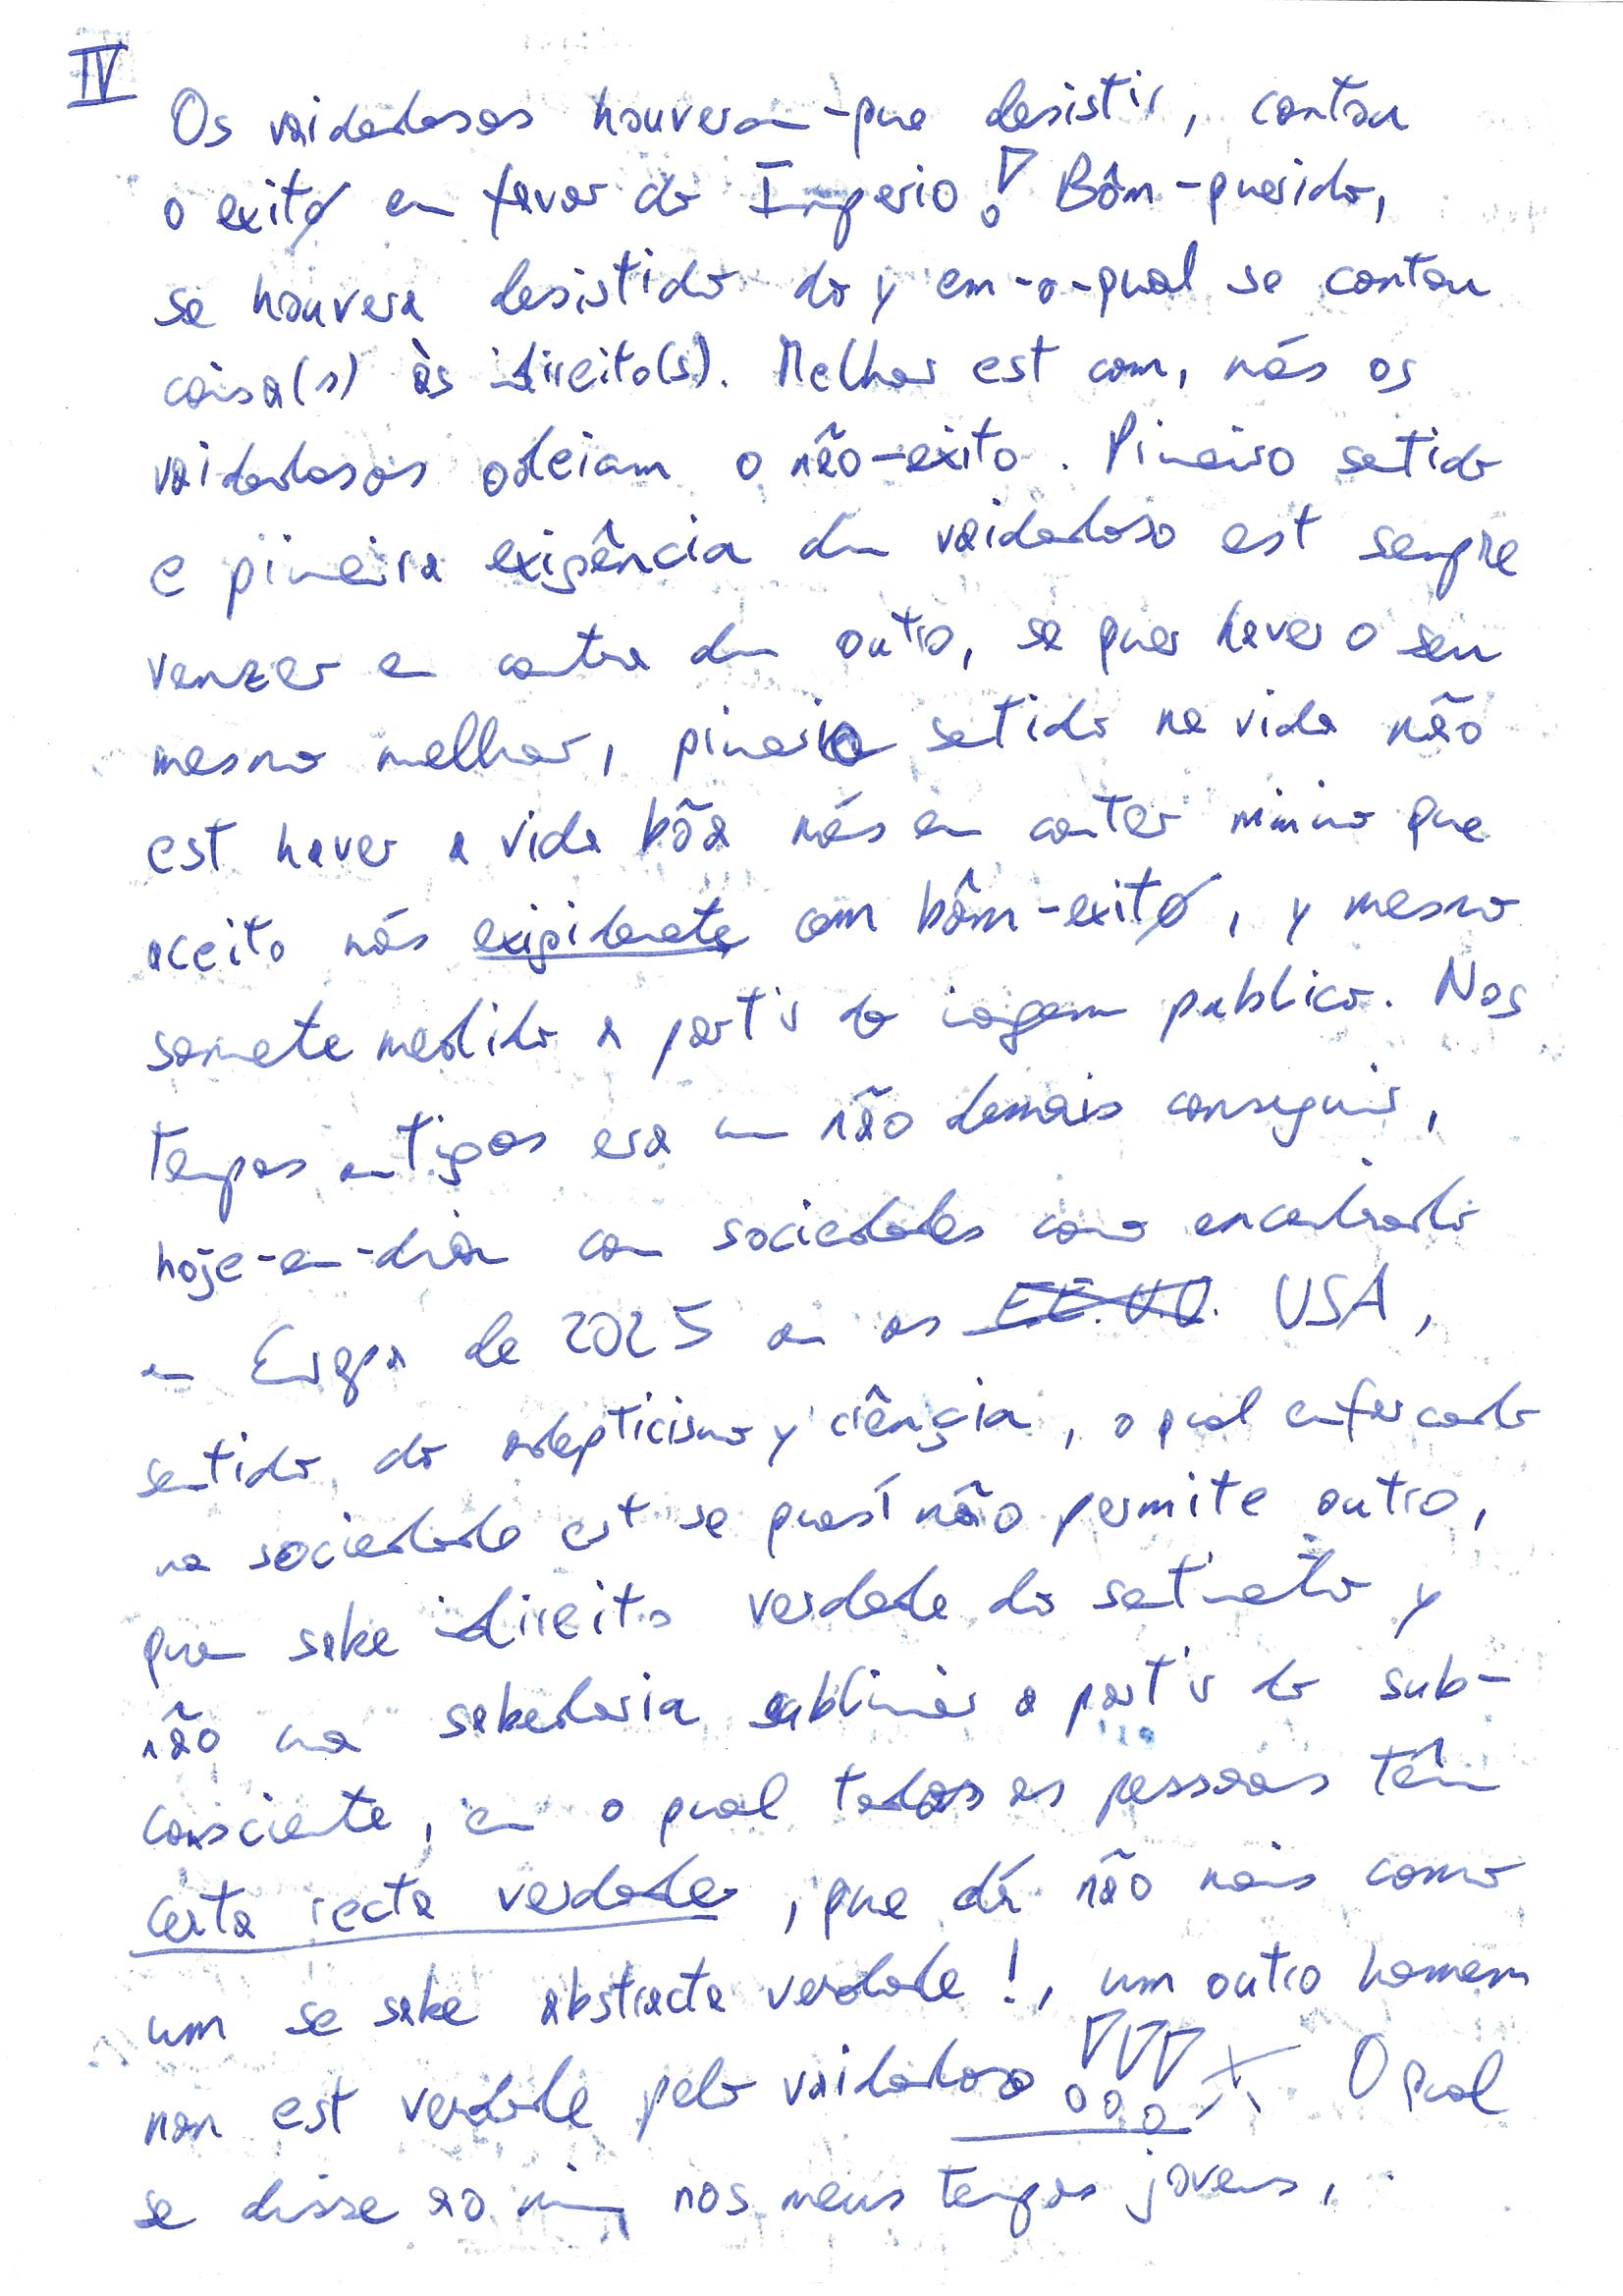 IV
Os vaidadosos houveram-que desistir, contou
o exito em favor do Império! Bôm-querido,
se houvera desistido do y em-o-qual se contou
coisa(s) às direito(s). Melhor est com, nós os
vaidadosos odeiam o não-exito. Pimeiro setido
e pimeira exigência du vaidadoso est sempre
venzer em contra du outro, se quer haver o seu
mesmo melhor, pimeiro setido na vida não
est haver a vida bõa nós em conter minimo que
aceito nós exigidamete com bôm-exito, y mesmo
somete medido a partir do imagem publico. Nos
tempos antigos era um não demais conseguir,
hoje-em-dia com sociedades como encontrado
em Europa de 2025 ou os E.E.U.U. USA,
sentido do septicismo y ciência, o qual enforcado
na sociedade est se quasí não permite outro,
quem sabe direito verdade do setimeto y
não uma sabedoria sublimar a partir do sub-
consciente, em o qual todas as pessoas têm
certa recta verdade, que dá não mais como
um se sabe abstracta verdade!, um outro homem
non est verdade pelo vaidadoso!!! O qual
se disse ao mim nos meus tempos jovens,